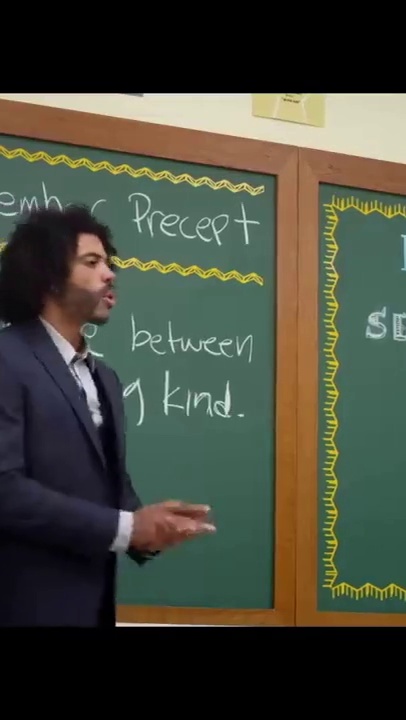 ember Precept
between
g kind.
SE